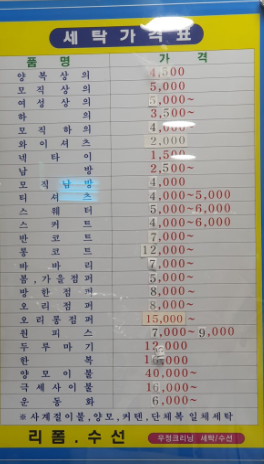 세탁가격표
품명 가격
양복상의 4,500
모직상의 5,000
여성상의 5,000~
하의 3,500~
모직하의 4,000~
와이셔츠 2,000
넥타이 1,500
남방 2,500~
모직남방 4,000
티셔츠 4,000~5,000
스웨터 5,000~6,000
스커트 4,000~6,000
반코트 7,000~
롱코트 12,000~
바바리 7,000~
봄,가을점퍼 5,000~
방한점퍼 8,000~
오리점퍼 8,000~
오리롱점퍼 15,000~
원피스 7,000~9,000
두루마기 12,000
한복 ,000
양모이불 40,000~
극세사이불 16,000~
운동화 6,000~
※사계절이불,양모,커텐,단체복 일체세탁
리폼.수선 우정크리닝 세탁/수선